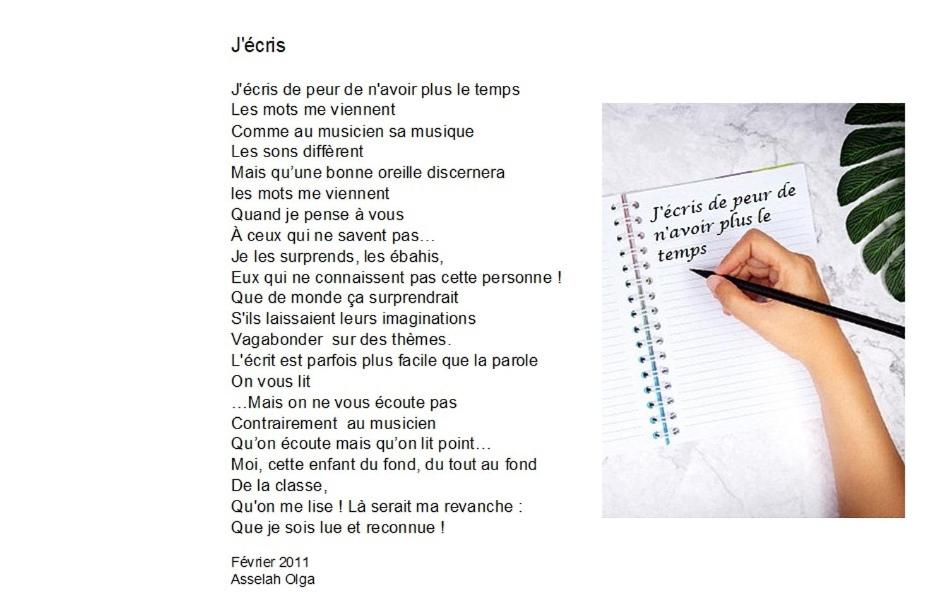 J'écris
J'écris de peur de n'avoir plus le temps
Les mots me viennent
Comme au musicien sa musique
Les sons diffèrent
Mais qu’une bonne oreille discernera
les mots me viennent
Quand je pense à vous
À ceux qui ne savent pas…
Je les surprends, les ébahis,
Eux qui ne connaissent pas cette personne !
Que de monde ça surprendrait
S'ils laissaient leurs imaginations
Vagabonder  sur des thèmes.
L'écrit est parfois plus facile que la parole
On vous lit
…Mais on ne vous écoute pas
Contrairement  au musicien
Qu’on écoute mais qu’on lit point…
Moi, cette enfant du fond, du tout au fond
De la classe,
Qu'on me lise ! Là serait ma revanche :
Que je sois lue et reconnue !
Février 2011
Asselah Olga
J'écris de peur de
n'avoir plus le
temps